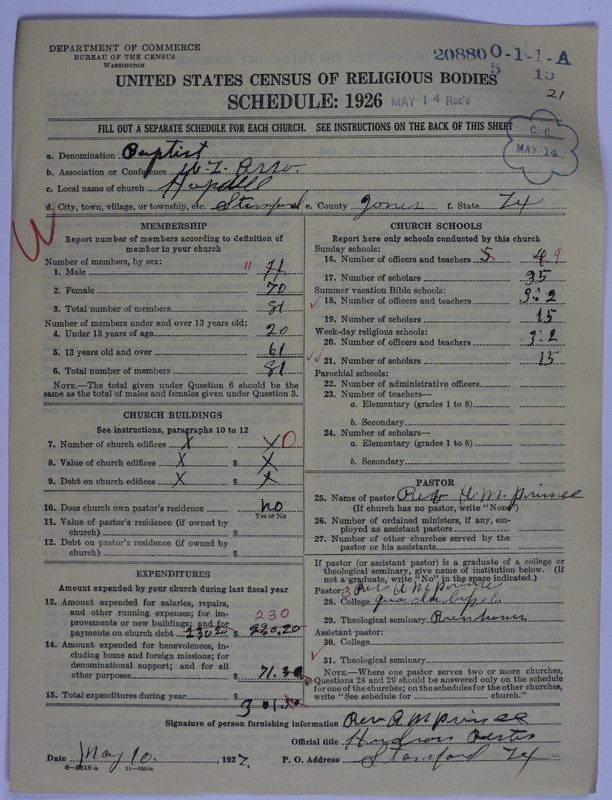 DEPARTMENT OF COMMERCE
BUREAU OF THE CENSUS
WASHINGTON
208800-1-1-A
5 15
21
UNITED STATES CENSUS OF RELIGIOUS BODIES
SCHEDULE: 1926 MAY 14 Rec'd
FILL OUT A SEPARATE SCHEDULE FOR EACH CHURCH. SEE INSTRUCTIONS ON THE BACK OF THIS SHEET
C. C.
MAY 14
a. Denomination Baptist
b. Association or Conference Asso.
c. Local name of church
d. City, town, village, or township, etc. Stamford e. County Jones f. State Tx
MEMBERSHIP
Report number of members according to definition of
member in your church
Number of members, by sex:
1. Male 11 71
2. Female 70
3. Total number of members 81
Number of members under and over 13 years old:
4. Under 13 years of age 20
5. 13 years old and over 61
6. Total number of members 81
NOTE.—The total given under Question 6 should be the
same as the total of males and females given under Question 3.
CHURCH BUILDINGS
See instructions, paragraphs 10 to 12
7. Number of church edifices X X 0
8. Value of church edifices X $ X
9. Debt on church edifices X $ X
10. Does church own pastor's residence? no
Yes or No
11. Value of pastor's residence (if owned by
church) $
12. Debt on pastor's residence (if owned by
church) $
EXPENDITURES
Amount expended by your church during last fiscal year
13. Amount expended for salaries, repairs,
and other running expenses; for im-
provements or new buildings; and for
payments on church debt 230.20 $ 230
14. Amount expended for benevolences, in-
cluding home and foreign missions; for
denominational support; and for all
other purposes $ 71.30
15. Total expenditures during year $
CHURCH SCHOOLS
Report here only schools conducted by this church
Sunday schools:
16. Number of officers and teachers 5 4 9
17. Number of scholars 35
Summer vacation Bible schools:
18. Number of officers and teachers 3:2
19. Number of scholars 15
Week-day religious schools:
20. Number of officers and teachers 3:2
21. Number of scholars 15
Parochial schools:
22. Number of administrative officers
23. Number of teachers—
a. Elementary (grades 1 to 8)
b. Secondary
24. Number of scholars—
a. Elementary (grades 1 to 8)
b. Secondary
PASTOR
25. Name of pastor Rev A. M. Prince
(If church has no pastor, write "None")
26. Number of ordained ministers, if any, em-
ployed as assistant pastors
27. Number of other churches served by the
pastor or his assistants
If pastor (or assistant pastor) is a graduate of a college or
theological seminary, give name of institution below. (If
not a graduate, write "No" in the space indicated.)
Pastor: 3 Rev. A M Prince
28. College
29. Theological seminary
Assistant pastor:
30. College
31. Theological seminary
NOTE.—Where one pastor serves two or more churches,
Questions 28 and 29 should be answered only on the schedule
for one of the churches; on the schedules for the other churches,
write "See schedule for church."
Signature of person furnishing information Rev. A M Prince
Official title
Date May 10, 1927. P. O. Address Stamford Tx
8—5518 a 11—8034a